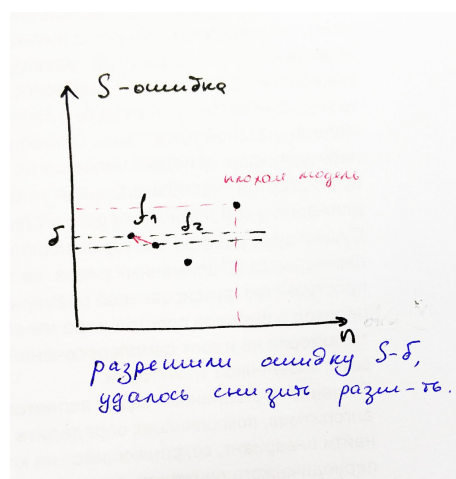 S-ошибка
плохая модель
f₁
f₂
δ
n
разрешили ошибку S-δ,
удалось снизить разм-ть.